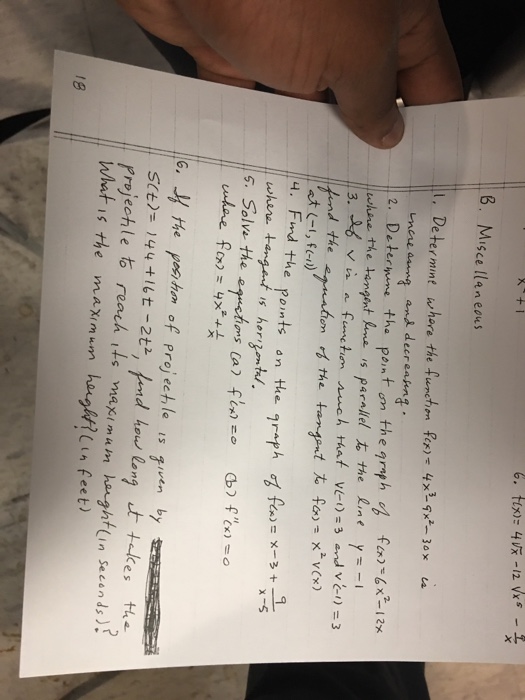 x² + 1
6. f(x) = 4√x - 12 √x⁵ - 9/x
B. Miscellaneous
1. Determine where the function f(x) = 4x³ - 9x² - 30x is
increasing and decreasing.
2. Determine the point on the graph of f(x) = 6x² - 12x
where the tangent line is parallel to the line y = -1
3. If v is a function such that v(-1) = 3 and v'(-1) = 3
find the equation of the tangent to f(x) = x² v(x)
at (-1, f(-1))
4. Find the points on the graph of f(x) = x - 3 + 9/(x-5)
where tangent is horizontal.
5. Solve the equations (a) f'(x) = 0 (b) f''(x) = 0
where f(x) = 4x² + 1/x
6. If the position of projectile is given by
S(t) = 144 + 16t - 2t², find how long it takes the
projectile to reach its maximum height (in seconds)?
What is the maximum height? (in feet)
18